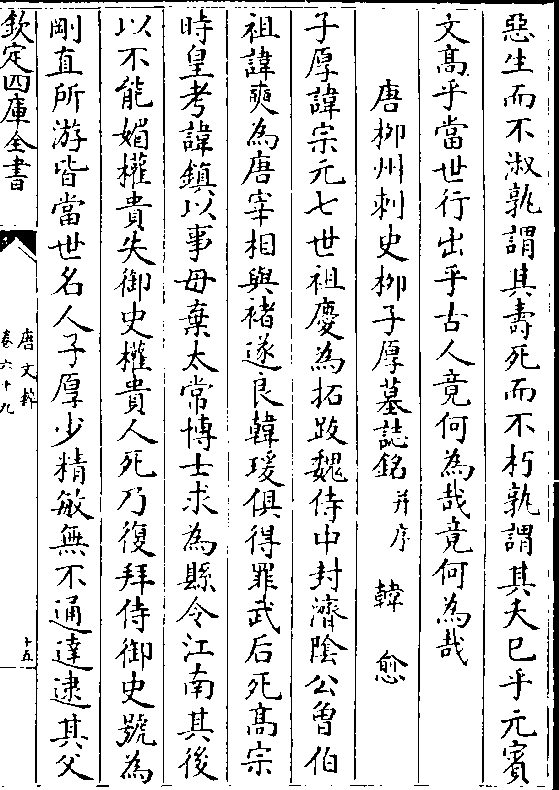 惡生而不淑孰謂其壽死而不朽孰謂其夭已乎元賓
文髙乎當世行出乎古人竟何為哉竟何為哉
唐柳州刺史柳子厚墓誌銘 并序 韓愈
子厚諱宗元七世祖慶為拓跋魏侍中封濟陰公曾伯
祖諱奭為唐宰相與褚遂良韓瑗俱得罪武后死髙宗
時皇考諱鎮以事母棄太常博士求為縣令江南其後
以不能媚權貴失御史權貴人死乃復拜侍御史號為
剛直所游皆當世名人子厚少精敏無不通達逮其父
欽定四庫全書
唐文粹
卷六十九
十五